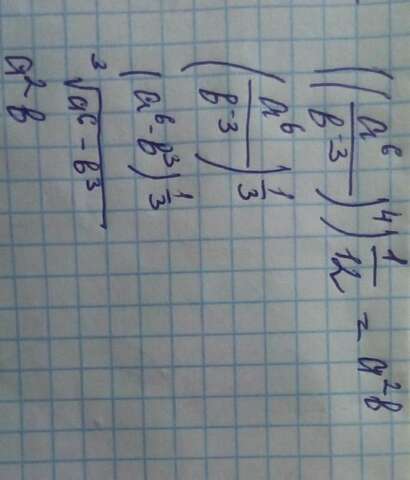 ((a⁶/b⁻³)⁴)^(1/12) = a²b
(a⁶/b⁻³)^(1/3)
(a⁶ - b³)^(1/3)
³√(a⁶ - b³)
a²b